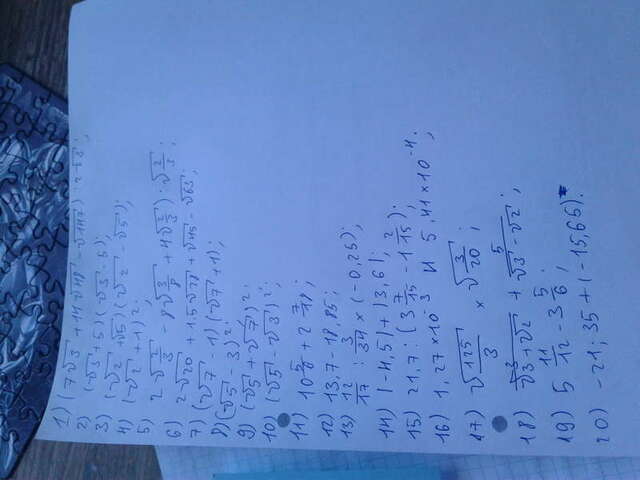 1) (7√3 + 14√48 - √147) : 2√3;
2) (√3 + 5)(√3 - 5);
3) (√2 + √5)(√2 - √5);
4) (√2 + 1)²;
5) 2√2/3 - 8√3/8 + 4√2/3) · √2/3;
6) 2√20 + 1.5√28 + √45 - √63;
7) (√7 - 1)(√7 + 1);
8) (√5 - 3)²;
9) (√5 + √7)²;
10) (√5 - √3)²;
11) 10 5/6 + 2 7/18;
12) 13,7 - 18,85;
13) 12/17 : 3/34 × (-0,25);
14) |-4,5| + |3,6|;
15) 21,7 : (3 7/15 - 1 2/15);
16) 1,27×10⁻³ и 5,41×10⁻⁴;
17) √125/3 × √3/20;
18) 3/√3+√2 + 5/√3-√2;
19) 5 11/12 - 3 5/6;
20) -21;35 + (-15,65).